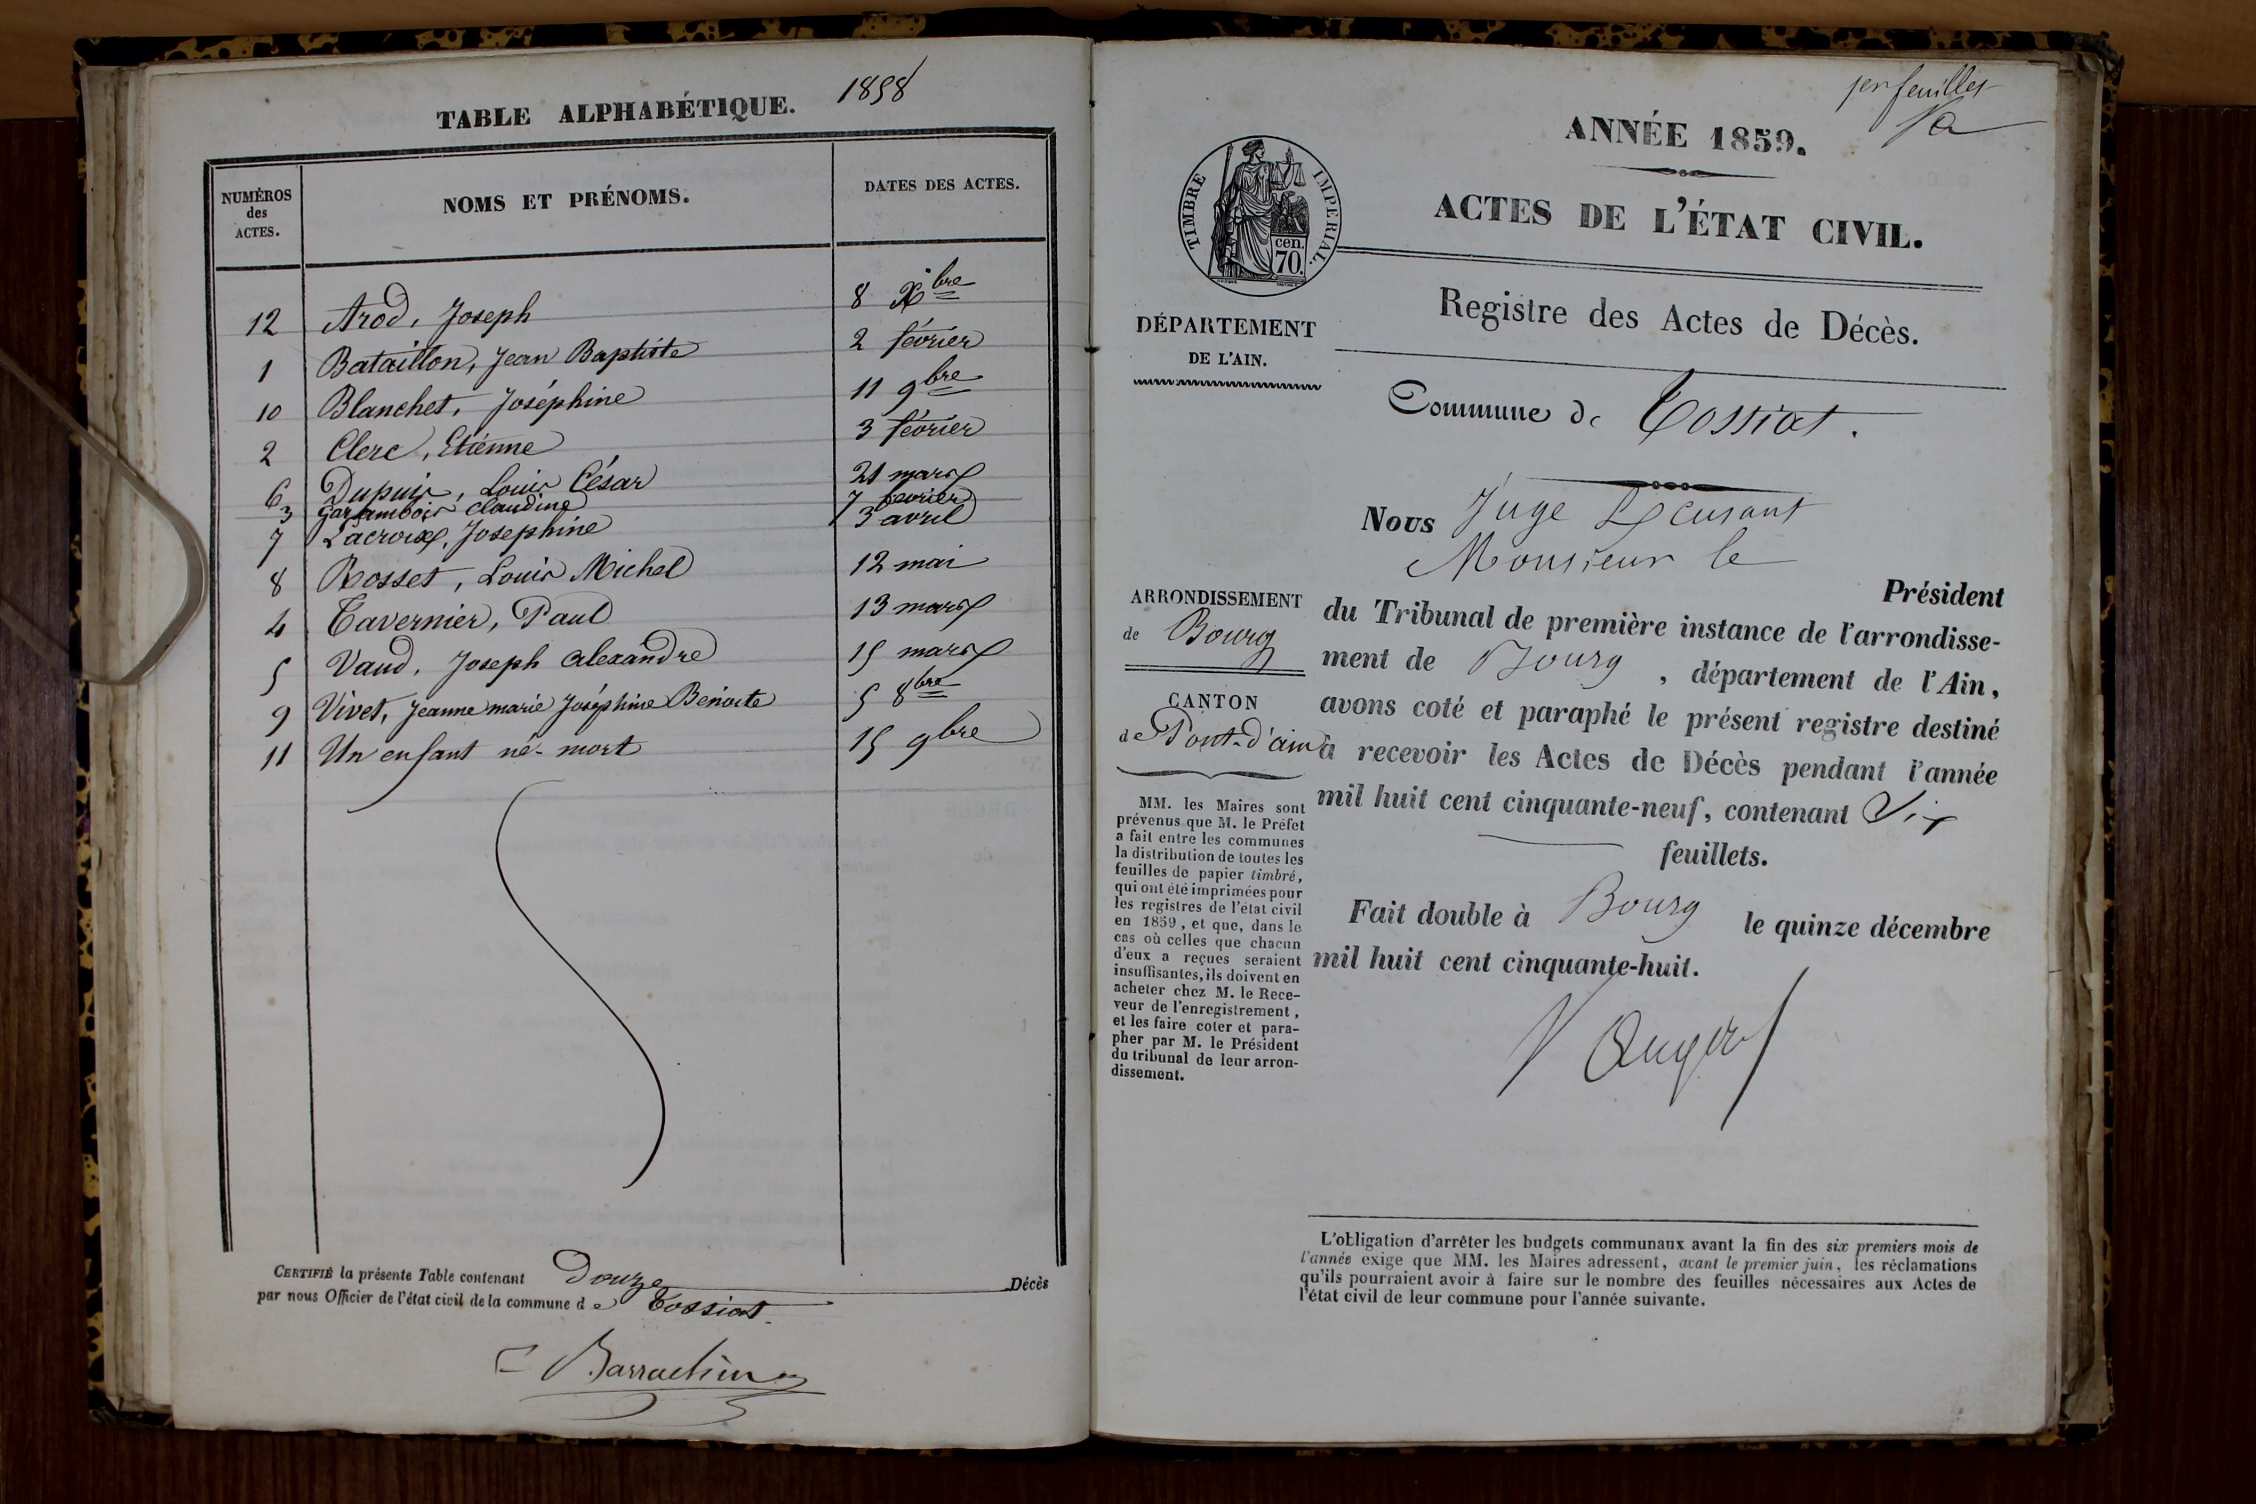 1858
TABLE ALPHABÉTIQUE.
NUMÉROS
des
ACTES.
NOMS ET PRÉNOMS.
DATES DES ACTES.
12 Arod, Joseph 8 Xbre
1 Bataillon, Jean Baptiste 2 février
10 Blanchet, Joséphine 11 9bre
2 Clerc, Etienne 3 février
6 Dupuis, Louis César 21 mars
3 Garambois Claudine 7 février
7 Lacroix, Josephine 3 avril
8 Rosset, Louis Michel 12 mai
4 Tavernier, Paul 13 mars
5 Vaud, Joseph Alexandre 15 mars
9 Vivet, Jeanne marie Joséphine Benoite 5 8bre
11 Un enfant né-mort 15 9bre
CERTIFIÉ la présente Table contenant Douze Décès
par nous Officier de l'état civil de la commune de Tossiat.
Barrachin
1er feuillet
ANNÉE 1859.
ACTES DE L'ÉTAT CIVIL.
TIMBRE IMPERIAL.
cen.
70.
Registre des Actes de Décès.
DÉPARTEMENT
DE L'AIN.
Commune de Tossiat.
Nous Juge
Monsieur le
Président
du Tribunal de première instance de l'arrondisse-
ment de Bourg, département de l'Ain,
avons coté et paraphé le présent registre destiné
à recevoir les Actes de Décès pendant l'année
mil huit cent cinquante-neuf, contenant Six
feuillets.
Fait double à Bourg le quinze décembre
mil huit cent cinquante-huit.
ARRONDISSEMENT
de Bourg
CANTON
de Pont-d'ain
MM. les Maires sont
prévenus que M. le Préfet
a fait entre les communes
la distribution de toutes les
feuilles de papier timbré,
qui ont été imprimées pour
les registres de l'état civil
en 1859, et que, dans le
cas où celles que chacun
d'eux a reçues seraient
insuffisantes, ils doivent en
acheter chez M. le Rece-
veur de l'enregistrement,
et les faire coter et para-
pher par M. le Président
du tribunal de leur arron-
dissement.
L'obligation d'arrêter les budgets communaux avant la fin des six premiers mois de
l'année exige que MM. les Maires adressent, avant le premier juin, les réclamations
qu'ils pourraient avoir à faire sur le nombre des feuilles nécessaires aux Actes de
l'état civil de leur commune pour l'année suivante.